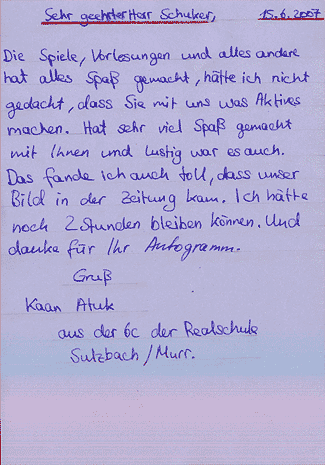 Sehr geehrter Herr Schuker, 15.6.2007
Die Spiele, Vorlesungen und alles andere
hat alles Spaß gemacht, hätte ich nicht
gedacht, dass Sie mit uns was Aktives
machen. Hat sehr viel Spaß gemacht
mit Ihnen und lustig war es auch.
Das fande ich auch toll, dass unser
Bild in der Zeitung kam. Ich hätte
noch 2 Stunden bleiben können. Und
danke für Ihr Autogramm.
Gruß
Kaan Atuk
aus der 6c der Realschule
Sulzbach/Murr.